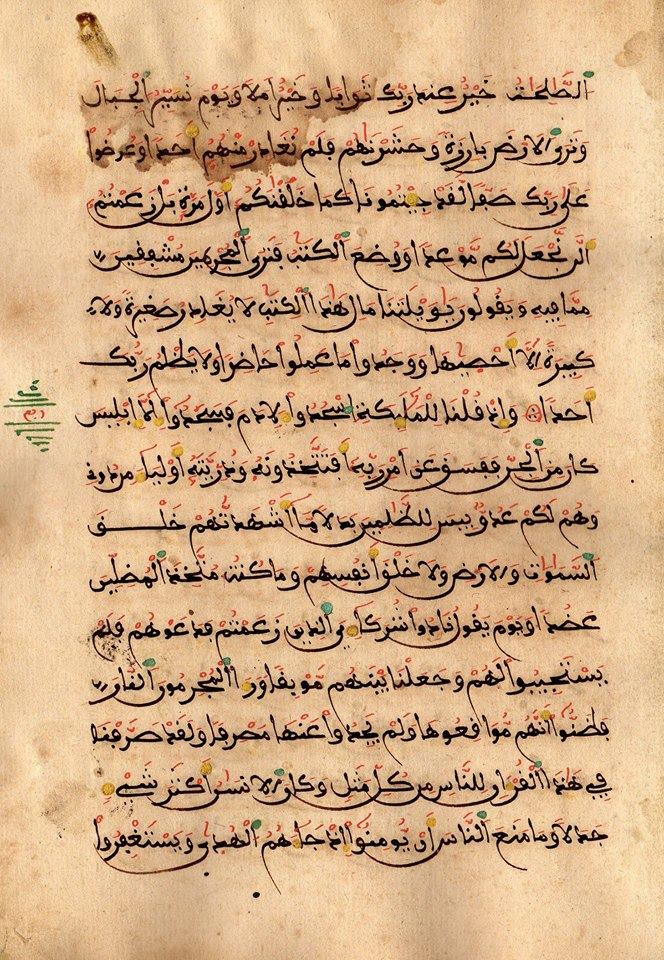 الصَّلِحَتُ خَيْرٌ عِندَ رَبِّكَ ثَوَابًا وَخَيْرٌ اَمَلًا وَيَوْمَ نُسَيِّرُ الْجِبَالَ
وَتَرَى الَارْضَ بَارِزَةً وَحَشَرْنَهُمْ فَلَمْ نُغَادِرْ مِنْهُمُ أَحَدًا وَعُرِضُوا
عَلَى رَبِّكَ صَفًّا لَقَدْ جِيْتُمُونَا كَمَا خَلَقْنَكُمُ أَوَّلَ مَرَّةٍ بَلْ زَعَمْتُمُ
أَلَّن نَّجْعَلَ لَكُم مَّوْعِدًا وَوُضِعَ الْكِتَبُ فَتَرَى الْمُجْرِمِينَ مُشْفِقِينَ
مِمَّا فِيهِ وَيَقُولُونَ يَوَيْلَتَنَا مَالِ هَذَا الْكِتَبِ لَا يُغَادِرُ صَغِيرَةً وَلَا
كَبِيرَةً اِلَّا أَحْصَيهَا وَوَجَدُوا مَا عَمِلُوا حَاضِرًا وَلَا يَظْلِمُ رَبُّكَ
أَحَدًا وَإِذْ قُلْنَا لِلْمَلَئِكَةِ اسْجُدُوا لِأَدَمَ فَسَجَدُوا إِلَّا إِبْلِيسَ
كَانَ مِنَ الْجِنِّ فَفَسَقَ عَنَ أَمْرِ رَبِّهِ أَفَتَتَّخِذُونَهُ وَذُرِّيَّتَهُ أَوْلِيَاءَ مِن دُونِي
وَهُمْ لَكُمْ عَدُوٌّ بِيسَ لِلظَّلِمِينَ بَدَلًا مَّا أَشْهَدتُّهُمْ خَلْقَ
السَّمَوَتِ وَالَارْضِ وَلَا خَلْقَ أَنفُسِهِمْ وَمَا كُنتُ مُتَّخِذَ الْمُضِلِّينَ
عَضُدًا وَيَوْمَ يَقُولُ نَادُوا شُرَكَاءِيَ الَّذِينَ زَعَمْتُمْ فَدَعَوْهُمْ فَلَمْ
يَسْتَجِيبُوا لَهُمْ وَجَعَلْنَا بَيْنَهُم مَّوْبِقًا وَرَأَى الْمُجْرِمُونَ النَّارَ
فَظَنُّوا أَنَّهُم مُّوَاقِعُوهَا وَلَمْ يَجِدُوا عَنْهَا مَصْرِفًا وَلَقَدْ صَرَّفْنَا
فِي هَذَا الْقُرْءَانِ لِلنَّاسِ مِن كُلِّ مَثَلٍ وَكَانَ الِانسَنُ أَكْثَرَ شَيْءٍ
جَدَلًا وَمَا مَنَعَ النَّاسَ أَنْ يُّومِنُوا إِذْ جَاءَهُمُ الْهُدَى وَيَسْتَغْفِرُوا